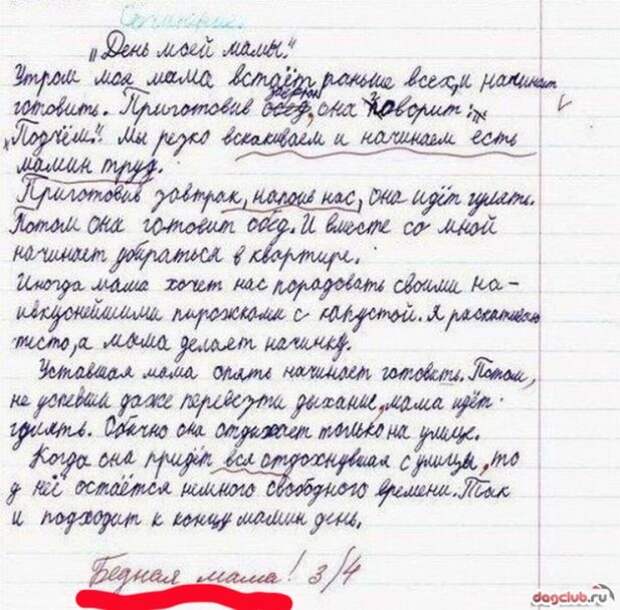 Сочинение.
„День моей мамы."
Утром моя мама встаёт раньше всех, и начинает
готовить. Приготовив завтрак обед, она говорит:
„Подъём". Мы резко вскакиваем и начинаем есть
мамин труд.
Приготовив завтрак, напоив нас, она идёт гулять.
Потом она готовит обед. И вместе со мной
начинает убираться в квартире.
Иногда мама хочет нас порадовать своими на-
ивкуснейшими пирожками с капустой. Я раскатываю
тесто, а мама делает начинку.
Уставшая мама опять начинает готовить. Потом,
не успевши даже перевезти дыхание, мама идёт
гулять. Обычно она отдыхает только на улице.
Когда она придёт вся отдохнувшая с улицы, то
у неё остаётся немного свободного времени. Так
и подходит к концу мамин день.
Бедная мама! 3/4
dagclub.ru